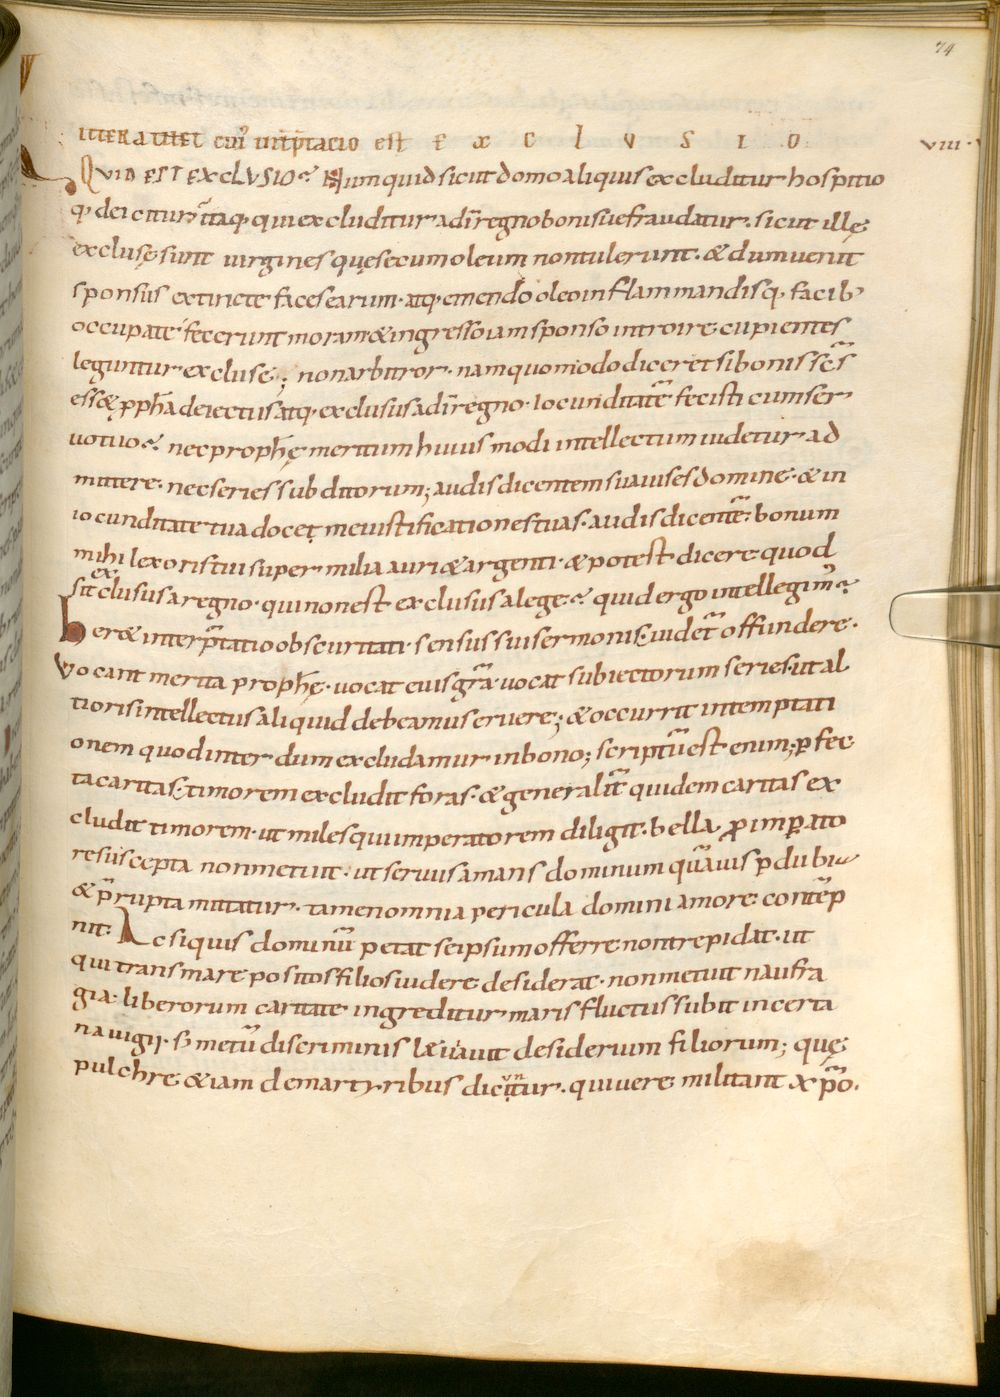 74
ITTERA THET cui' int̄ptacio est E X C L V S I O VIII
QVID EST EXCLVSIO? Numquid sicut domo aliquis excluditur hospitio
q· deicitur ita q· qui excluditur a dī regno bonisue fraudatur. sicut illę
exclusę sunt uirgines quę secum oleum non tulerunt· & dum uenit
sponsus extincte faces earum· atq· emendo oleo inflammandisq· facib'
occupate fecerunt moram & ingresso iam sponso introire cupientes
leguntur excluse; non arbitror· nam quomodo diceret si bonis sc̄s
ess& p̱pha deiectus atq· exclusus a dī regno· Iocunditatē fecisti cum ser
uo tuo? nec prophę meritum huius modi intellectum uidetur ad
mittere· nec series subditorum; audis dicentem suauis es domine· & in
iocunditate tua docet me iustificationes tuas· audis dicentē· bonum
mihi lex oris tui super milia auri & argenti· & potest dicere quod
sit exclusus a regno· qui non est exclusus a lege? quid ergo intellegim'?
her& interp̄tatio obscuritati· sensus sui sermonis· uidet̄ offundere·
vocant merita prophę· uocat eius gr̄a· uocat subiectorum series· ut al
tioris intellectus aliquid debeamus eruere; & occurrit in temptati
onem quod inter dum excludamur in bono; scriptū est enim; p̱fec
ta caritas· timorem excludit foras· & generalit̄ quidem caritas ex
cludit timorem· ut miles qui imperatorem diligit· bella p̱ro imp̱ato
re suscepta non metuit· ut seruus amans dominum quāuis p̱ dubia
& p̄rupta mittatur· tamen omnia pericula domini amore contēp
nit· Ac si quis dominū petat se ipsum offerre non trepidat· ut
qui trans mare positos filios uidere desiderat· non metuit naufra
gia· liberorum caritate ingreditur maris fluctus subit incerta
nauigii· s; metū discriminis leuauit desiderium filiorum; quę
pulchre & iam de martyribus dicuntur· qui uere militant xp̄o·